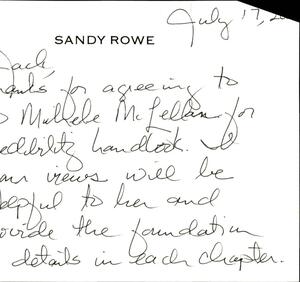 July 17, 20
SANDY ROWE
Jack,
anks for agreeing to
Michele McLellan for
edibility handbook. I
our views will be
elpful to her and
ovide the foundation
details in each chapter.